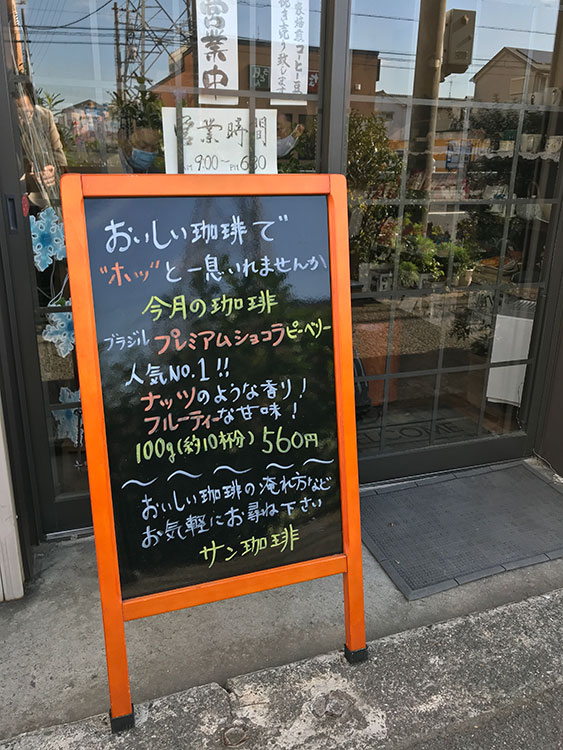 営業中
自家焙煎コーヒー豆
挽き売り致します
営業時間
AM 9:00~PM 6:30
おいしい珈琲で
"ホッ"と一息いれませんか
今月の珈琲
ブラジル プレミアムショコラピーベリー
人気NO.1!!
ナッツのような香り!
フルーティーな甘味!
100g(約10杯分) 560円
おいしい珈琲の淹れ方など
お気軽にお尋ね下さい
サン珈琲
WELCOME